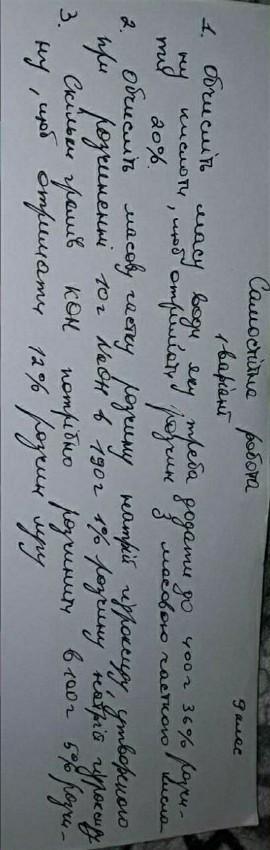 Самостійна робота
9 клас
1 варіант
1. Обчисліть масу води яку треба додати до 400г 36% розчи-
ну кислоти, щоб отримати розчин з масовою часткою кисло
ти 20%.
2. Обчисліть масову частку розчину натрій гідроксиду, утвореного
при розчиненні 10г NaOH в 190г 1% розчину натрій гідроксиду
3. Скільки грамів KOH потрібно розчинити в 100г 5% розчи-
ну, щоб отримати 12% розчин лугу